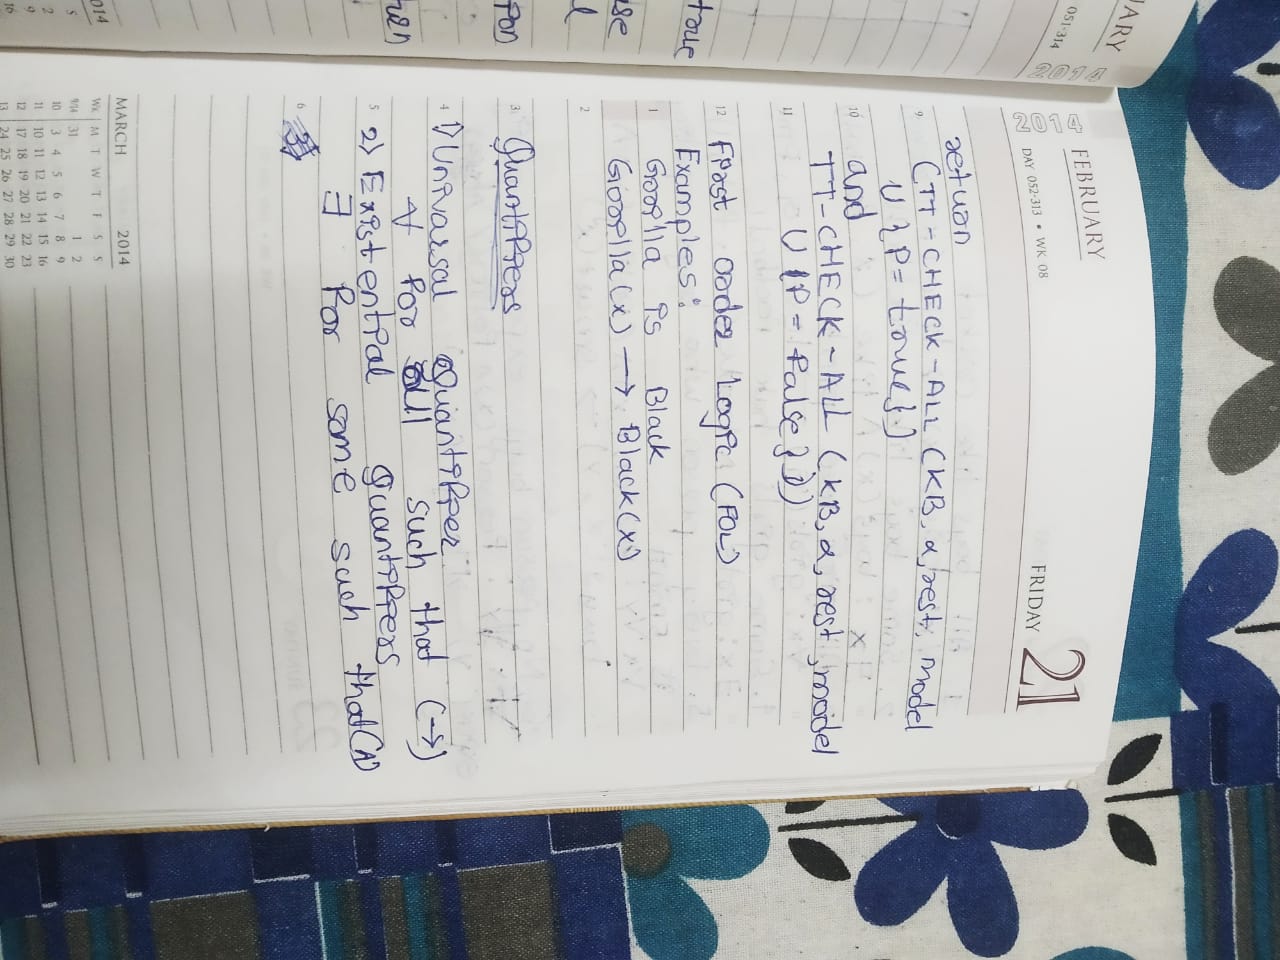 UARY
051-314
2014
2014
FEBRUARY
DAY 052-313 • WK 08
FRIDAY 21
return
9 (TT-CHECK-ALL (KB, α, rest, model
U {P = true})
10 and
TT-CHECK-ALL (KB, α, rest, model
11 U {P = false}))
12 First order Logic (FOL)
Examples:
1 Gorilla is Black
Gorilla(x) → Black(x)
2
3 Quantifiers
4 1) Univarsal Quantifier
∀ for all such that (→)
5 2) Existential Quantifiers
∃ for some such that (∧)
6
true
MARCH 2014
Wk M T W T F S S
9/14 31 1 2
10 3 4 5 6 7 8 9
11 10 11 12 13 14 15 16
12 17 18 19 20 21 22 23
13 24 25 26 27 28 29 30